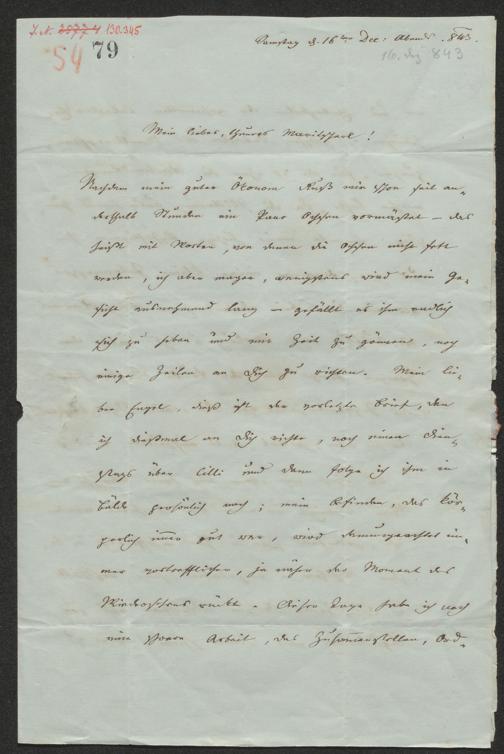 I.N. 130.345
54 79
Samstag d. 16ten Dec: Abends 843.
16. Dez 843
Mein liebes, theures Marietscherl!
Nachdem mein guter Ökonom Ruß mir schon seit an-
derthalb Stunden ein Paar Ochsen vormästet – das
heißt mit Worten, von denen die Ochsen nicht fett
werden, ich aber mager, wenigstens wird mein Ge-
sicht zusehends lang – gefällt es ihm endlich
sich zu heben und mir Zeit zu gönnen, noch
einige Zeilen an Dich zu richten. Mein lie-
ber Engel, dieß ist der vorletzte Brief, den
ich dießmal an Dich richte, noch einen Dien-
stags über Cilli und dann folge ich ihm in
Bälde persönlich nach; mein Befinden, das kör-
perlich immer gut war, wird demungeachtet im-
mer vortrefflicher, je näher der Moment des
Wiedersehens rückt. Diese Tage habe ich noch
eine Arbeit, das Zusammenstellen, Ord-